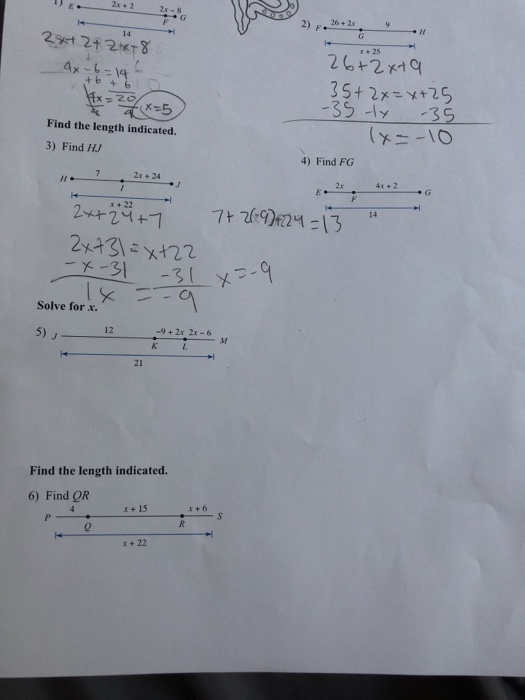 1) E 2x + 2 2x - 8
F G
14
2x+2+2x-8
4x-6=14
+6 +6
4x=20
4 4 x=5
2) F 26 + 2x 9 H
G
x + 25
26+2x+9
35+2x=x+25
-35 -1x -35
1x=-10
Find the length indicated.
3) Find HJ
H 7 2x + 24 J
I
x + 22
2x+24+7
7+2(-9)+24=13
2x+31=x+22
-x-31 -31
1x = -9
x=-9
4) Find FG
E 2x 4x + 2 G
F
14
Solve for x.
5) J 12 -9 + 2x 2x - 6 M
K L
21
Find the length indicated.
6) Find QR
P 4 x + 15 x + 6 S
Q R
x + 22